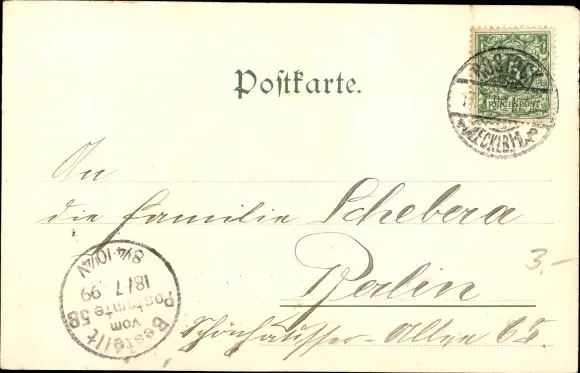 Postkarte.
ROSTOCK
(MECKLB) 1.
REICHSPOST
An
die Familie Schebera
Berlin
Schönhauser-Allee
3.-
Bestellt
vom
Postamte 58
18/7 99
8¼-10½V